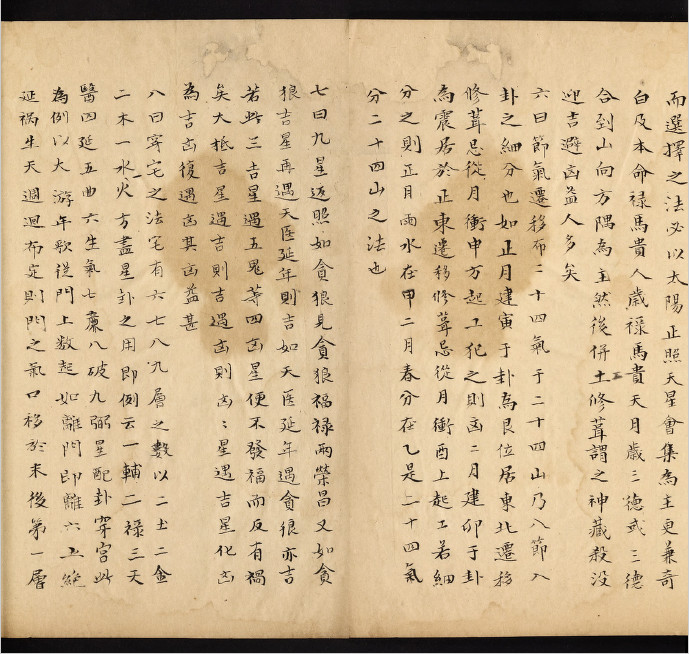 而選擇之法必以太陽正照天星會集為主更兼奇
白及本命禄馬貴人歲禄馬貴天月歲三德或三德
合到山向方隅為主然後併工修葺謂之神藏殺没
迎吉避凶益人多矣
六曰節氣遷移布二十四氣于二十四山乃八節入
卦之細分也如正月建寅于卦為艮位居東北遷移
修葺忌從月衝申方起工犯之則凶二月建卯于卦
為震居於正東遷移修葺忌從月衝酉上起工若細
分之則正月雨水在甲二月春分在乙是二十四氣
分二十四山之法也
七曰九星返照如貪狼見貪狼福禄両榮昌又如貪
狼吉星再遇天医延年則吉如天医延年遇貪狼亦吉
若此三吉星遇五鬼等四凶星便不發福而反有禍
矣大抵吉星遇吉則吉遇凶則凶〻星遇吉星化凶
為吉凶復遇凶其凶益甚
八曰穿宅之法宅有六七八九層之數以二土二金
二木一水一火方盡星卦之用即例云一輔二禄三天
醫四延五曲六生氣七廉八破九弼星配卦穿宮此
為例以大游年歌從門上數起如離門即離六五絶
延禍生天週迴布定則門之氣口移於末後第一層